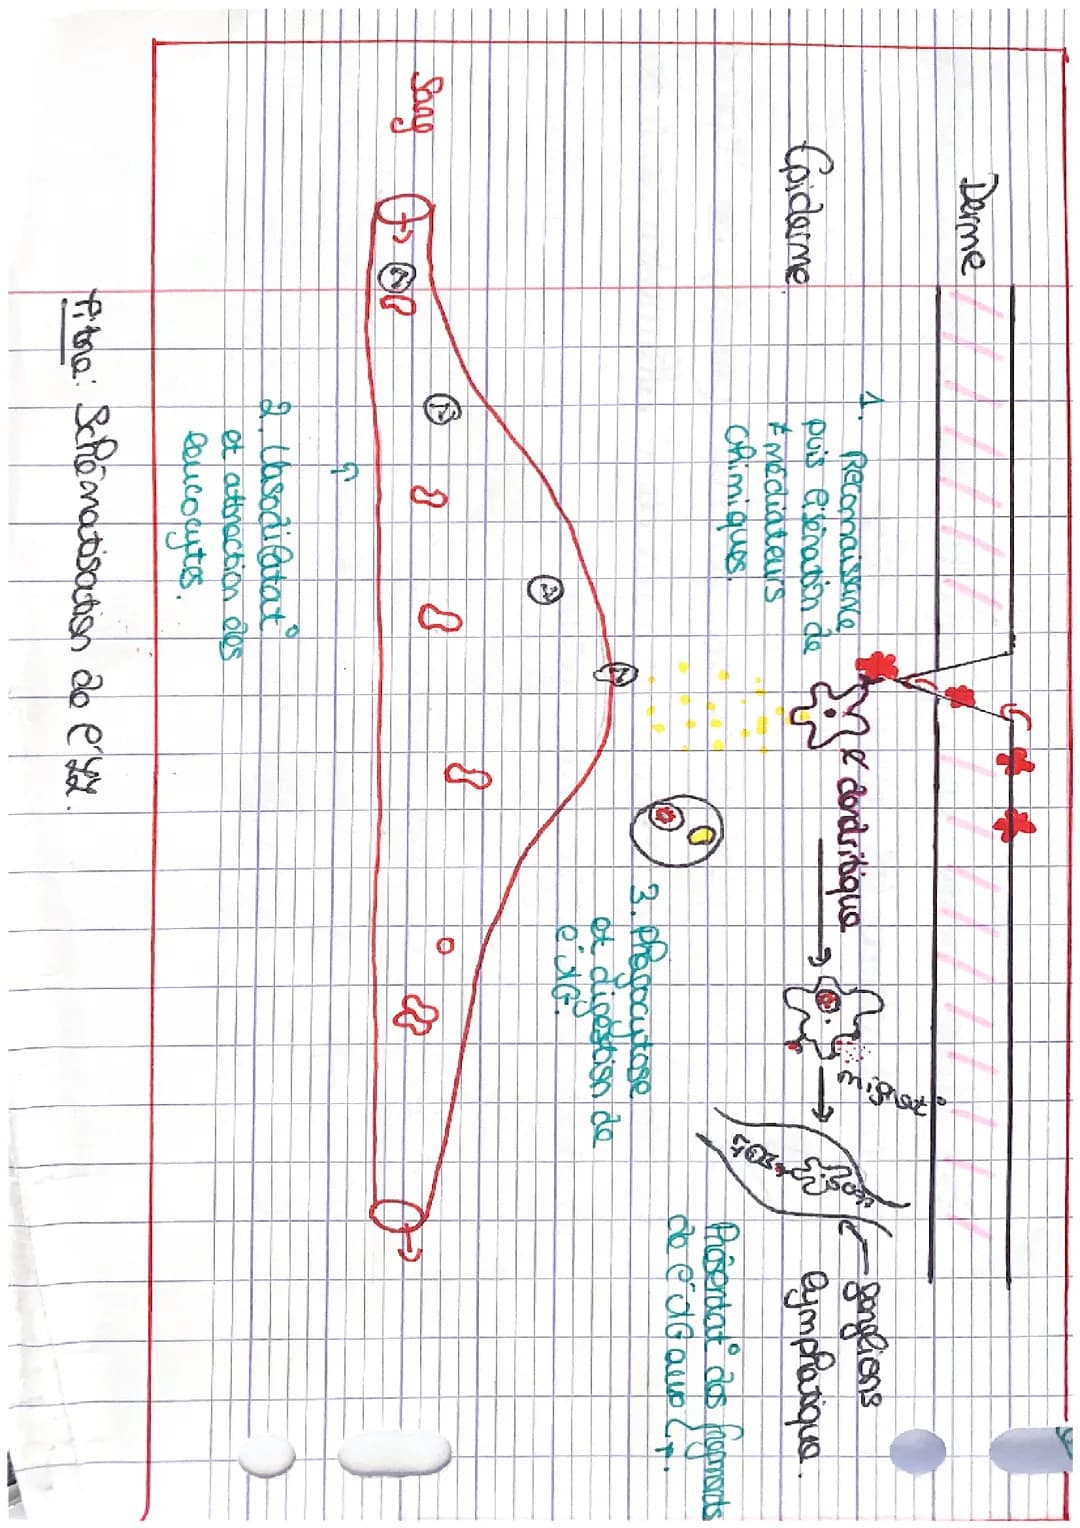 Derme
Epiderme
1. Reconnaissance
puis libération de
≠ médiateurs
chimiques.
¢ dendritique
migrat°
ganglions
lymphatique.
Présentat° des fragments
de l'AG aux LT.
3. Phagocytose
et digestion de
l'AG.
Sang
2. Vasodilatat°
et attraction des
leucocytes.
Titre: Schématisation de l'